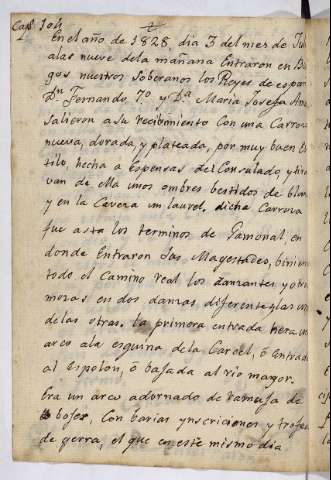 Capº 104
En el año de 1828, dia 3 del mes de
alas nueve dela mañana Entraron en
gos nuestros Soberanos los Reyes de espan
Dn Fernando 7º y Dª Maria Josefa Ama
Salieron a su recibimiento Con una Carroza
nueva, dorada, y plateada, por muy buen es
tilo, hecha a Espensas del Consulado, y tira
van de ella unos ombres bestidos de blan
y en la Cavera un laurel, dicha Carroza
fue asta los terminos de Gamonal, en
donde Entraron Sas Magestades, biniendo
todo el Camino real los danzantes y otra
mozas en dos danzas diferentes las un
delas otras. la primera entrada hera un
arco ala esquina dela Carcel, ó Entrada
al Espolon, ó bajada al rio mayor.
Era un arco adornado de ramusa de
bojes, Con barias ynscriciones y trofe
de gerra, el que en este mismo dia